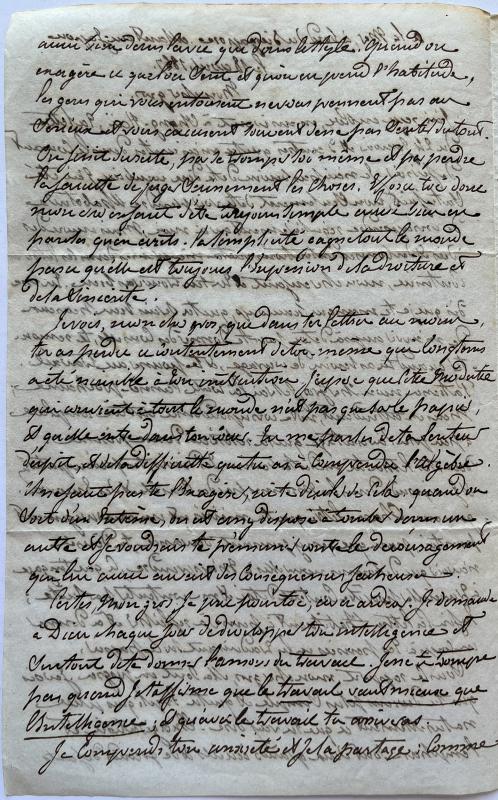 aussi bien dans la vie que dans le style. Quand on
exagère ce que l'on sent et qu'on en prend l'habitude,
les gens qui vous entourent ne vous prennent pas au
sérieux et vous accusent souvent de ne pas sentir du tout.
On finit ensuite, par se tromper toi même et par perdre
la faculté de juger sainement les choses. Efforce toi donc
mon cher enfant d'être toujours simple aussi bien en
paroles qu'en écrits. la simplicité gagne tout le monde
parce qu'elle est toujours l'expression de la droiture et
de la sincérité.
Je vois, mon cher gros, que dans ta lettre au moins,
tu as perdu ce contentement de toi même que longtems
a été nuisible à ton instruction. J'espère que cette modestie
qui convient à tout le monde n'est pas que sur le papier
et qu'elle entre dans ton cœur. Tu me parles de ta lenteur
d'esprit, et de la difficulté que tu as à comprendre l'algèbre.
Il ne faut pas te l'exagérer, quand on
sort d'un extrême, on est assez disposé à tomber dans un
autre et je voudrais te prémunir contre le découragement
qui lui aussi aurait des conséquences fâcheuses.
Certes, mon gros, je prie pour toi, avec ardeur. Je demande
à Dieu chaque jour de développer ton intelligence et
surtout de te donner l'amour du travail. Je ne te trompe
pas quand je t'affirme que le travail vaut mieux que
l'intelligence, et qu'avec le travail tu arriveras.
Je comprends ton anxiété et je la partage: Comme